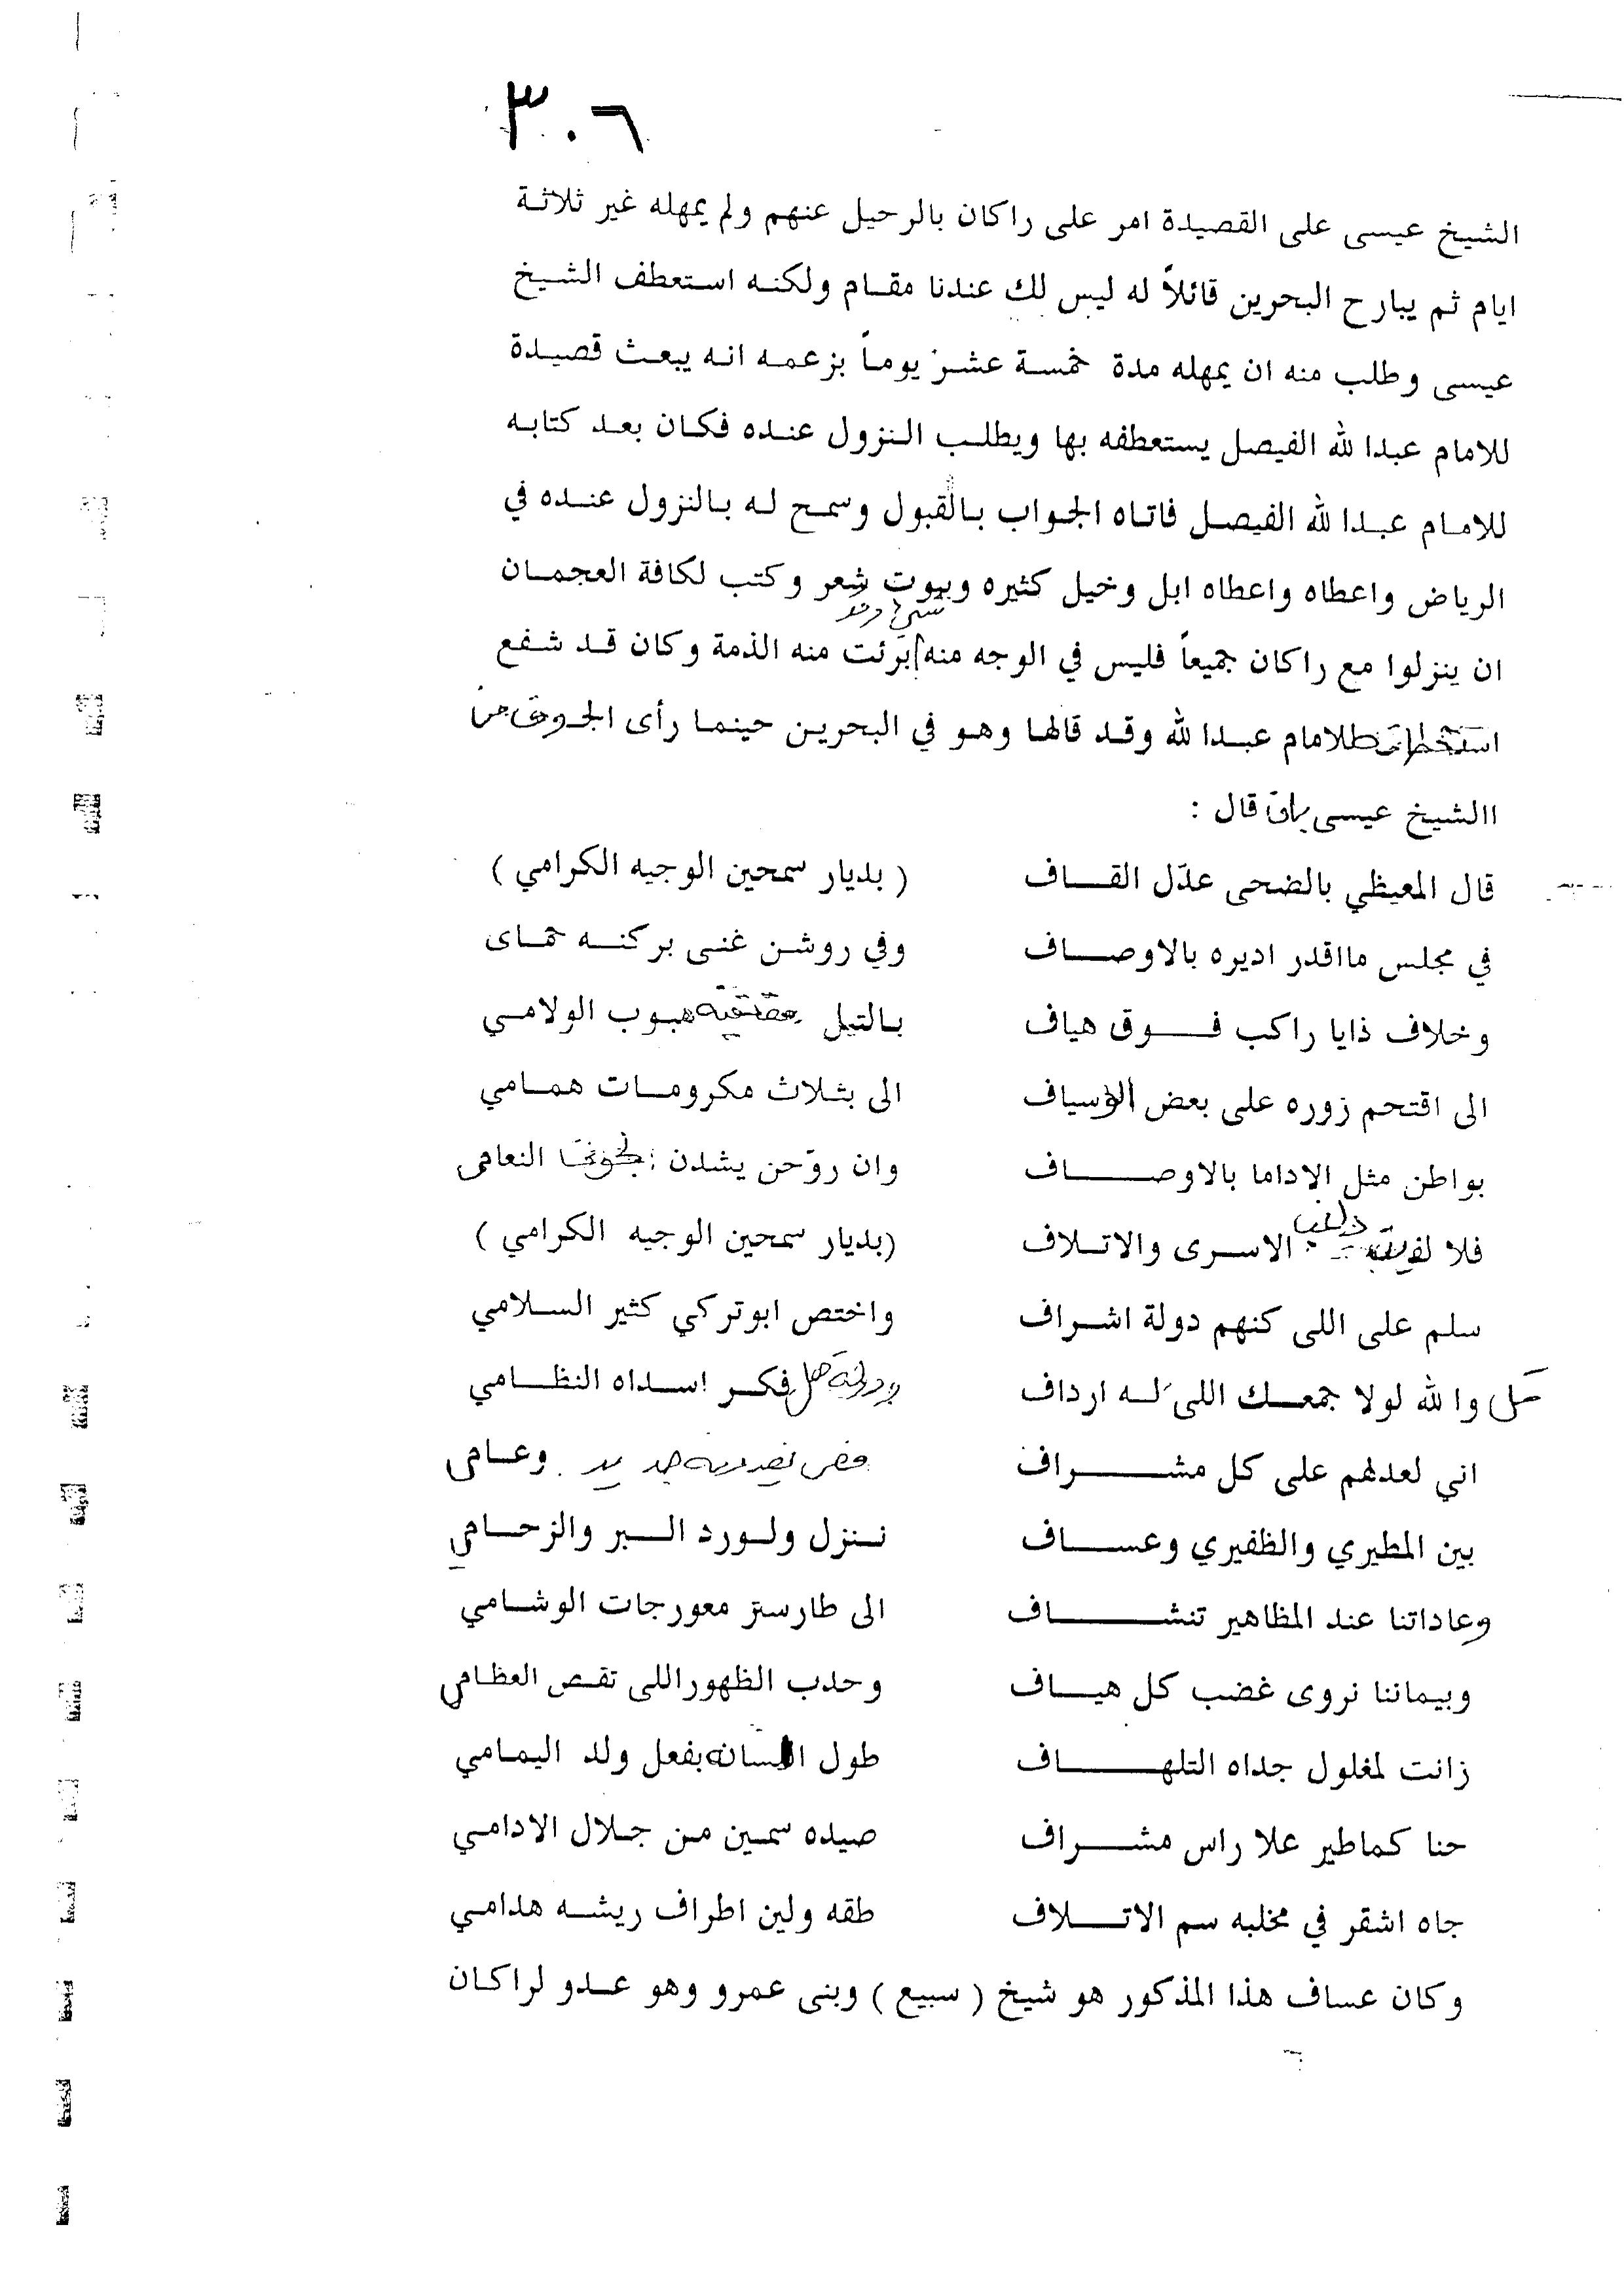 ٣٠٦
الشيخ عيسى على القصيدة امر على راكان بالرحيل عنهم ولم يمهله غير ثلاثة
ايام ثم يبارح البحرين قائلاً له ليس لك عندنا مقام ولكنه استعطف الشيخ
عيسى وطلب منه ان يمهله مدة خمسة عشر يوماً بزعمه انه يبعث قصيدة
للامام عبدا لله الفيصل يستعطفه بها ويطلب النزول عنده فكان بعد كتابه
للامام عبدا لله الفيصل فاتاه الجواب بالقبول وسمح له بالنزول عنده في
الرياض واعطاه واعطاه ابل وخيل كثيره وبيوت شعر وكتب لكافة العجمان
ان ينزلوا مع راكان جميعاً فليس في الوجه منه برئت منه الذمة وكان قد شفع
للامام عبدا لله وقد قالها وهو في البحرين حينما رأى الجوى من
االشيخ عيسى بان قال :
قال المعيظي بالضحى عدّل القاف ( بديار سمحين الوجيه الكرامي )
في مجلس مااقدر اديره بالاوصاف وفي روشن غنى بركنه حماى
وخلاف ذايا راكب فوق هياف بالتيل هبوب الولامي
الى اقتحم زوره على بعض الاسياف الى بثلاث مكرومات همامي
بواطن مثل الاداما بالاوصاف وان روّحن يشدن النعامى
فلا الاسرى والاتلاف (بديار سمحين الوجيه الكرامي )
سلم على اللى كنهم دولة اشراف واختص ابوتركي كثير السلامي
والله لولا جمعك اللى له ارداف فكر اسداه النظامي
اني لعدلهم على كل مشراف وعامى
بين المطيري والظفيري وعساف ننزل ولورد البر والزحامي
وعاداتنا عند المظاهير تنشاف الى طارستر معورجات الوشامي
وبيماننا نروى غضب كل هياف وحدب الظهوراللى تقص العظامي
زانت لمغلول جداه التلهاف طول بفعل ولد اليمامي
حنا كماطير علا راس مشراف صيده سمين من جلال الادامي
جاه اشقر في مخلبه سم الاتلاف طقه ولين اطراف ريشه هدامي
وكان عساف هذا المذكور هو شيخ ( سبيع ) وبنى عمرو وهو عدو لراكان